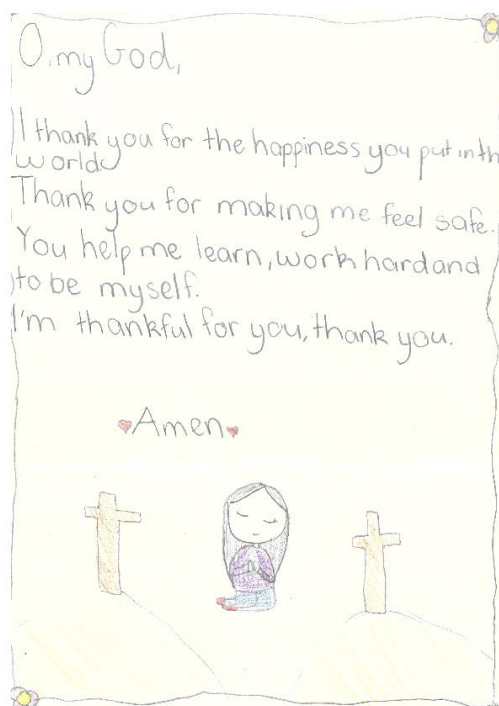 O, my God,
I thank you for the happiness you put in th
world
Thank you for making me feel safe.
You help me learn, work hard and
to be myself.
I'm thankful for you, thank you.
Amen